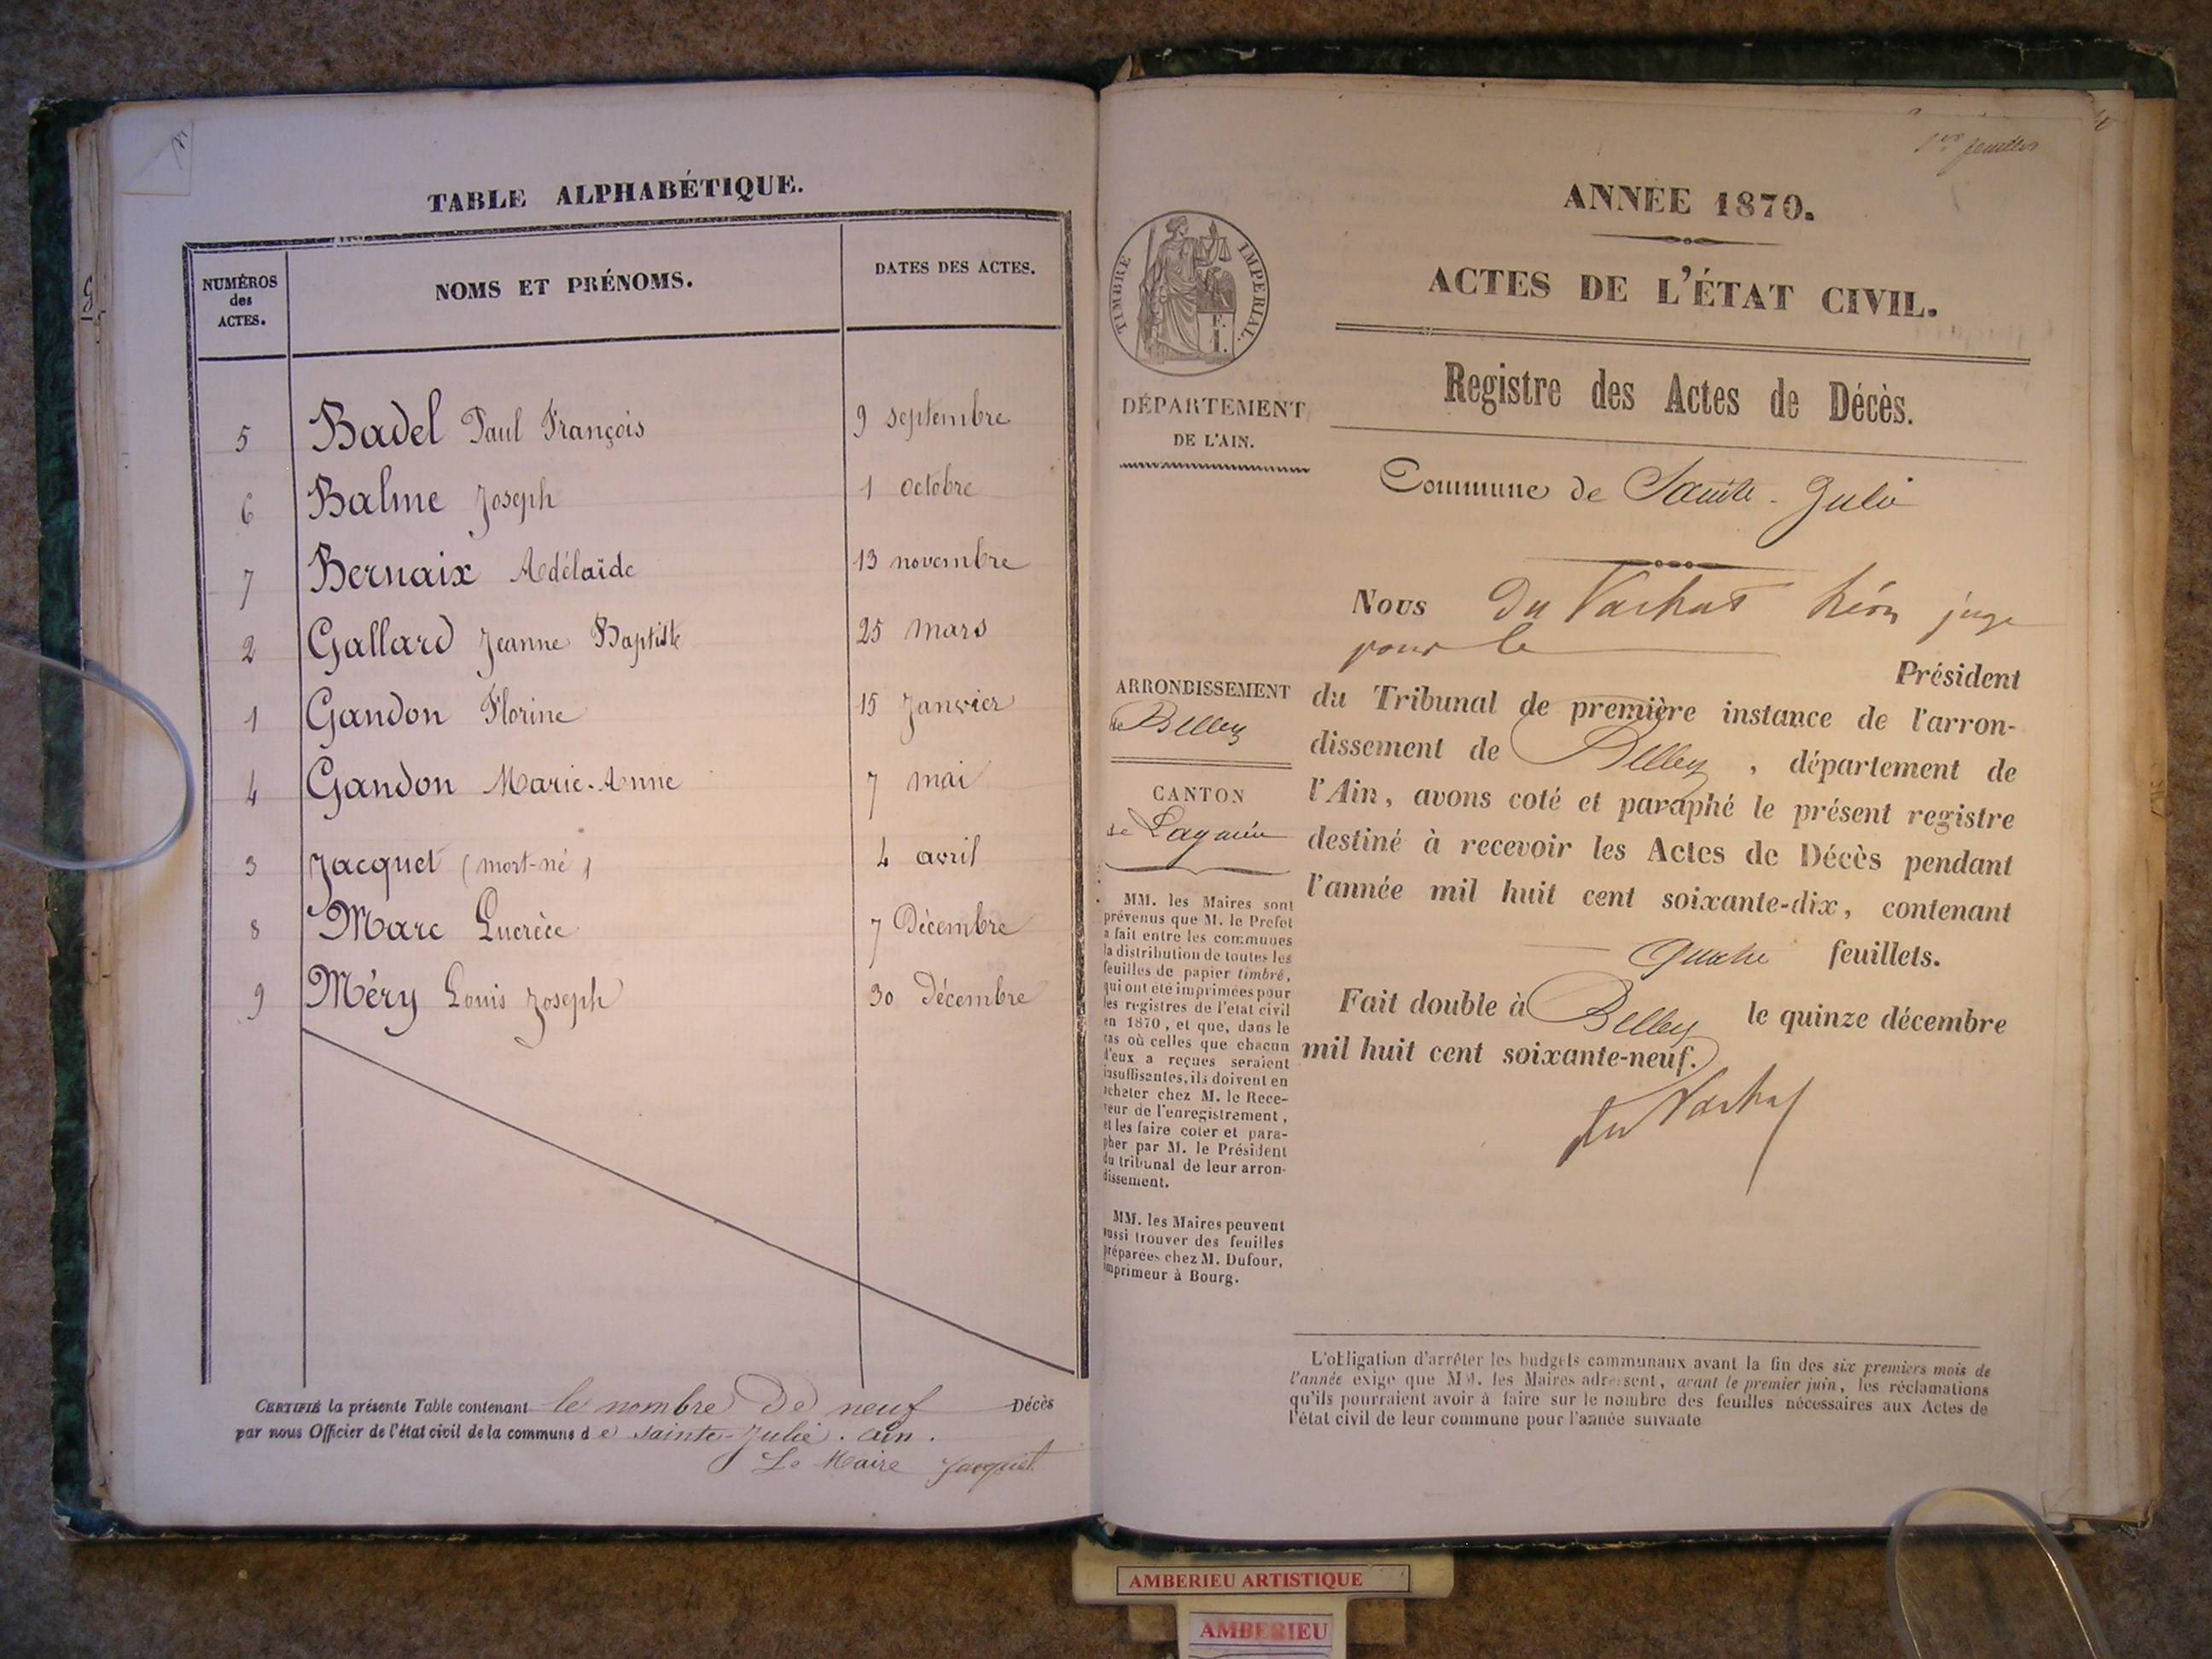 TABLE ALPHABÉTIQUE.
NUMÉROS
des
ACTES.
NOMS ET PRÉNOMS.
DATES DES ACTES.
5 Badel Paul François 9 septembre
6 Balme Joseph 1 octobre
7 Bernaix Adélaïde 13 novembre
2 Gallard Jeanne Baptiste 25 mars
1 Gandon Florine 15 Janvier
4 Gandon Marie-Anne 7 mai
3 Jacquet (mort-né) 4 avril
8 Marc Lucrèce 7 Décembre
9 Méry Louis Joseph 30 Décembre
CERTIFIÉ la présente Table contenant le nombre De neuf Décès
par nous Officier de l'état civil de la commune de Sainte-Julie. ain.
Le Maire Jacquet
feuillet
ANNÉE 1870.
ACTES DE L'ÉTAT CIVIL.
Registre des Actes de Décès.
Commune de Sainte-Julie
TIMBRE IMPERIAL.
DÉPARTEMENT
DE L'AIN.
ARRONDISSEMENT
de Belley
CANTON
de Lagnieu
MM. les Maires sont
prévenus que M. le Prefet
a fait entre les communes
la distribution de toutes les
feuilles de papier timbré,
qui ont été imprimées pour
les registres de l'état civil
en 1870, et que, dans le
cas où celles que chacun
d'eux a reçues seraient
insuffisantes, ils doivent en
acheter chez M. le Rece-
veur de l'enregistrement,
et les faire coter et para-
pher par M. le Président
du tribunal de leur arron-
dissement.
MM. les Maires peuvent
aussi trouver des feuilles
préparées chez M. Dufour,
imprimeur à Bourg.
Nous Du Vachat Léon juge
pour le
Président
du Tribunal de première instance de l'arron-
dissement de Belley, département de
l'Ain, avons coté et paraphé le présent registre
destiné à recevoir les Actes de Décès pendant
l'année mil huit cent soixante-dix, contenant
quatre feuillets.
Fait double à Belley le quinze décembre
mil huit cent soixante-neuf.
Du Vachat
L'obligation d'arrêter les budgets communaux avant la fin des six premiers mois de
l'année exige que MM. les Maires adressent, avant le premier juin, les réclamations
qu'ils pourraient avoir à faire sur le nombre des feuilles nécessaires aux Actes de
l'état civil de leur commune pour l'année suivante
AMBERIEU ARTISTIQUE
AMBERIEU